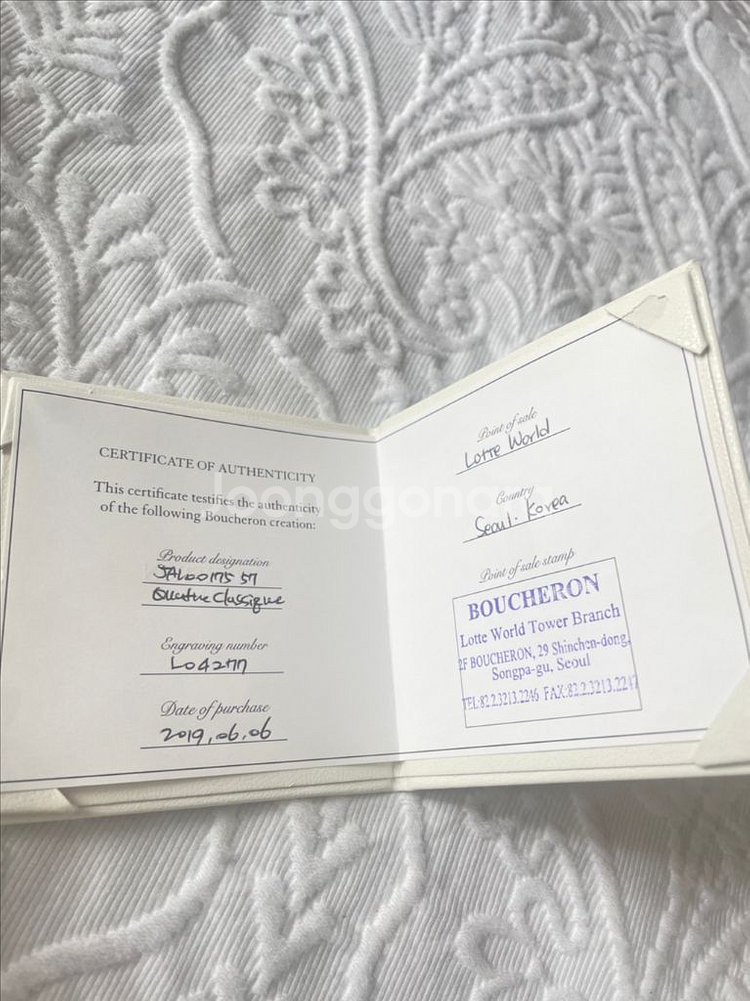 CERTIFICATE OF AUTHENTICITY
This certificate testifies the authenticity
of the following Boucheron creation:
Product designation
JAL00175 57
Quatre Classique
Engraving number
L04277
Date of purchase
2019.06.06
Point of sale
Lotte World
Country
Seoul. Korea
Point of sale stamp
BOUCHERON
Lotte World Tower Branch
2F BOUCHERON, 29 Shinchen-dong,
Songpa-gu, Seoul
TEL:82.2.3213.2246 FAX:82.2.3213.2247